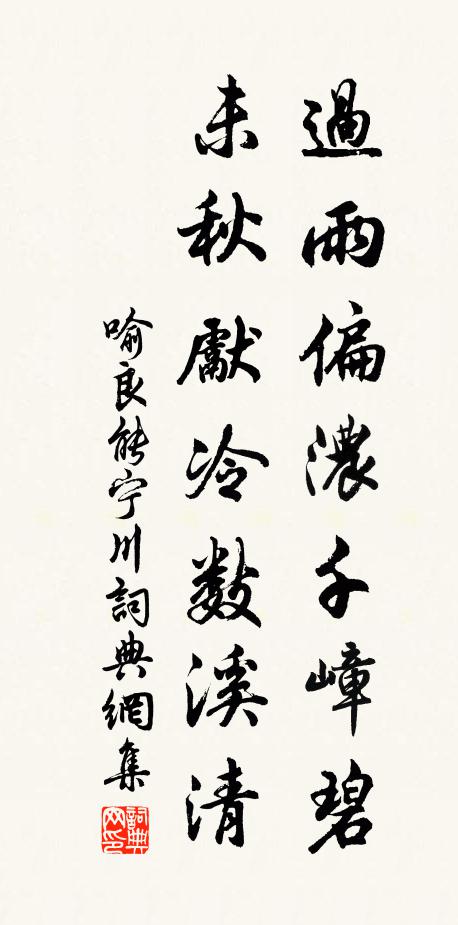 過雨偏濃千嶂碧
未秋獻冷數溪清
喻良能宁川詞典網集
詞典网印